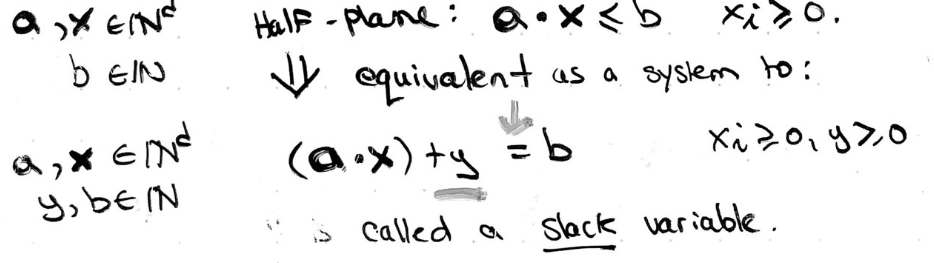 a, x ∈ ℕᵈ Half-plane: a • x ≤ b xᵢ ≥ 0.
b ∈ ℕ ⇓ equivalent as a system to:
↓
a, x ∈ ℕᵈ (a • x) + y = b xᵢ ≥ 0, y ≥ 0
y, b ∈ ℕ
is called a slack variable.